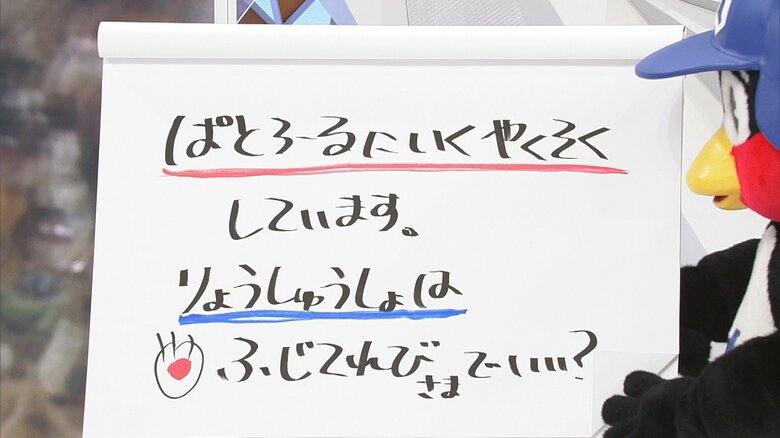 ぱとろーるにいくやくそく
しています。
りょうしゅうしょは
ふじてれびさまでいい?